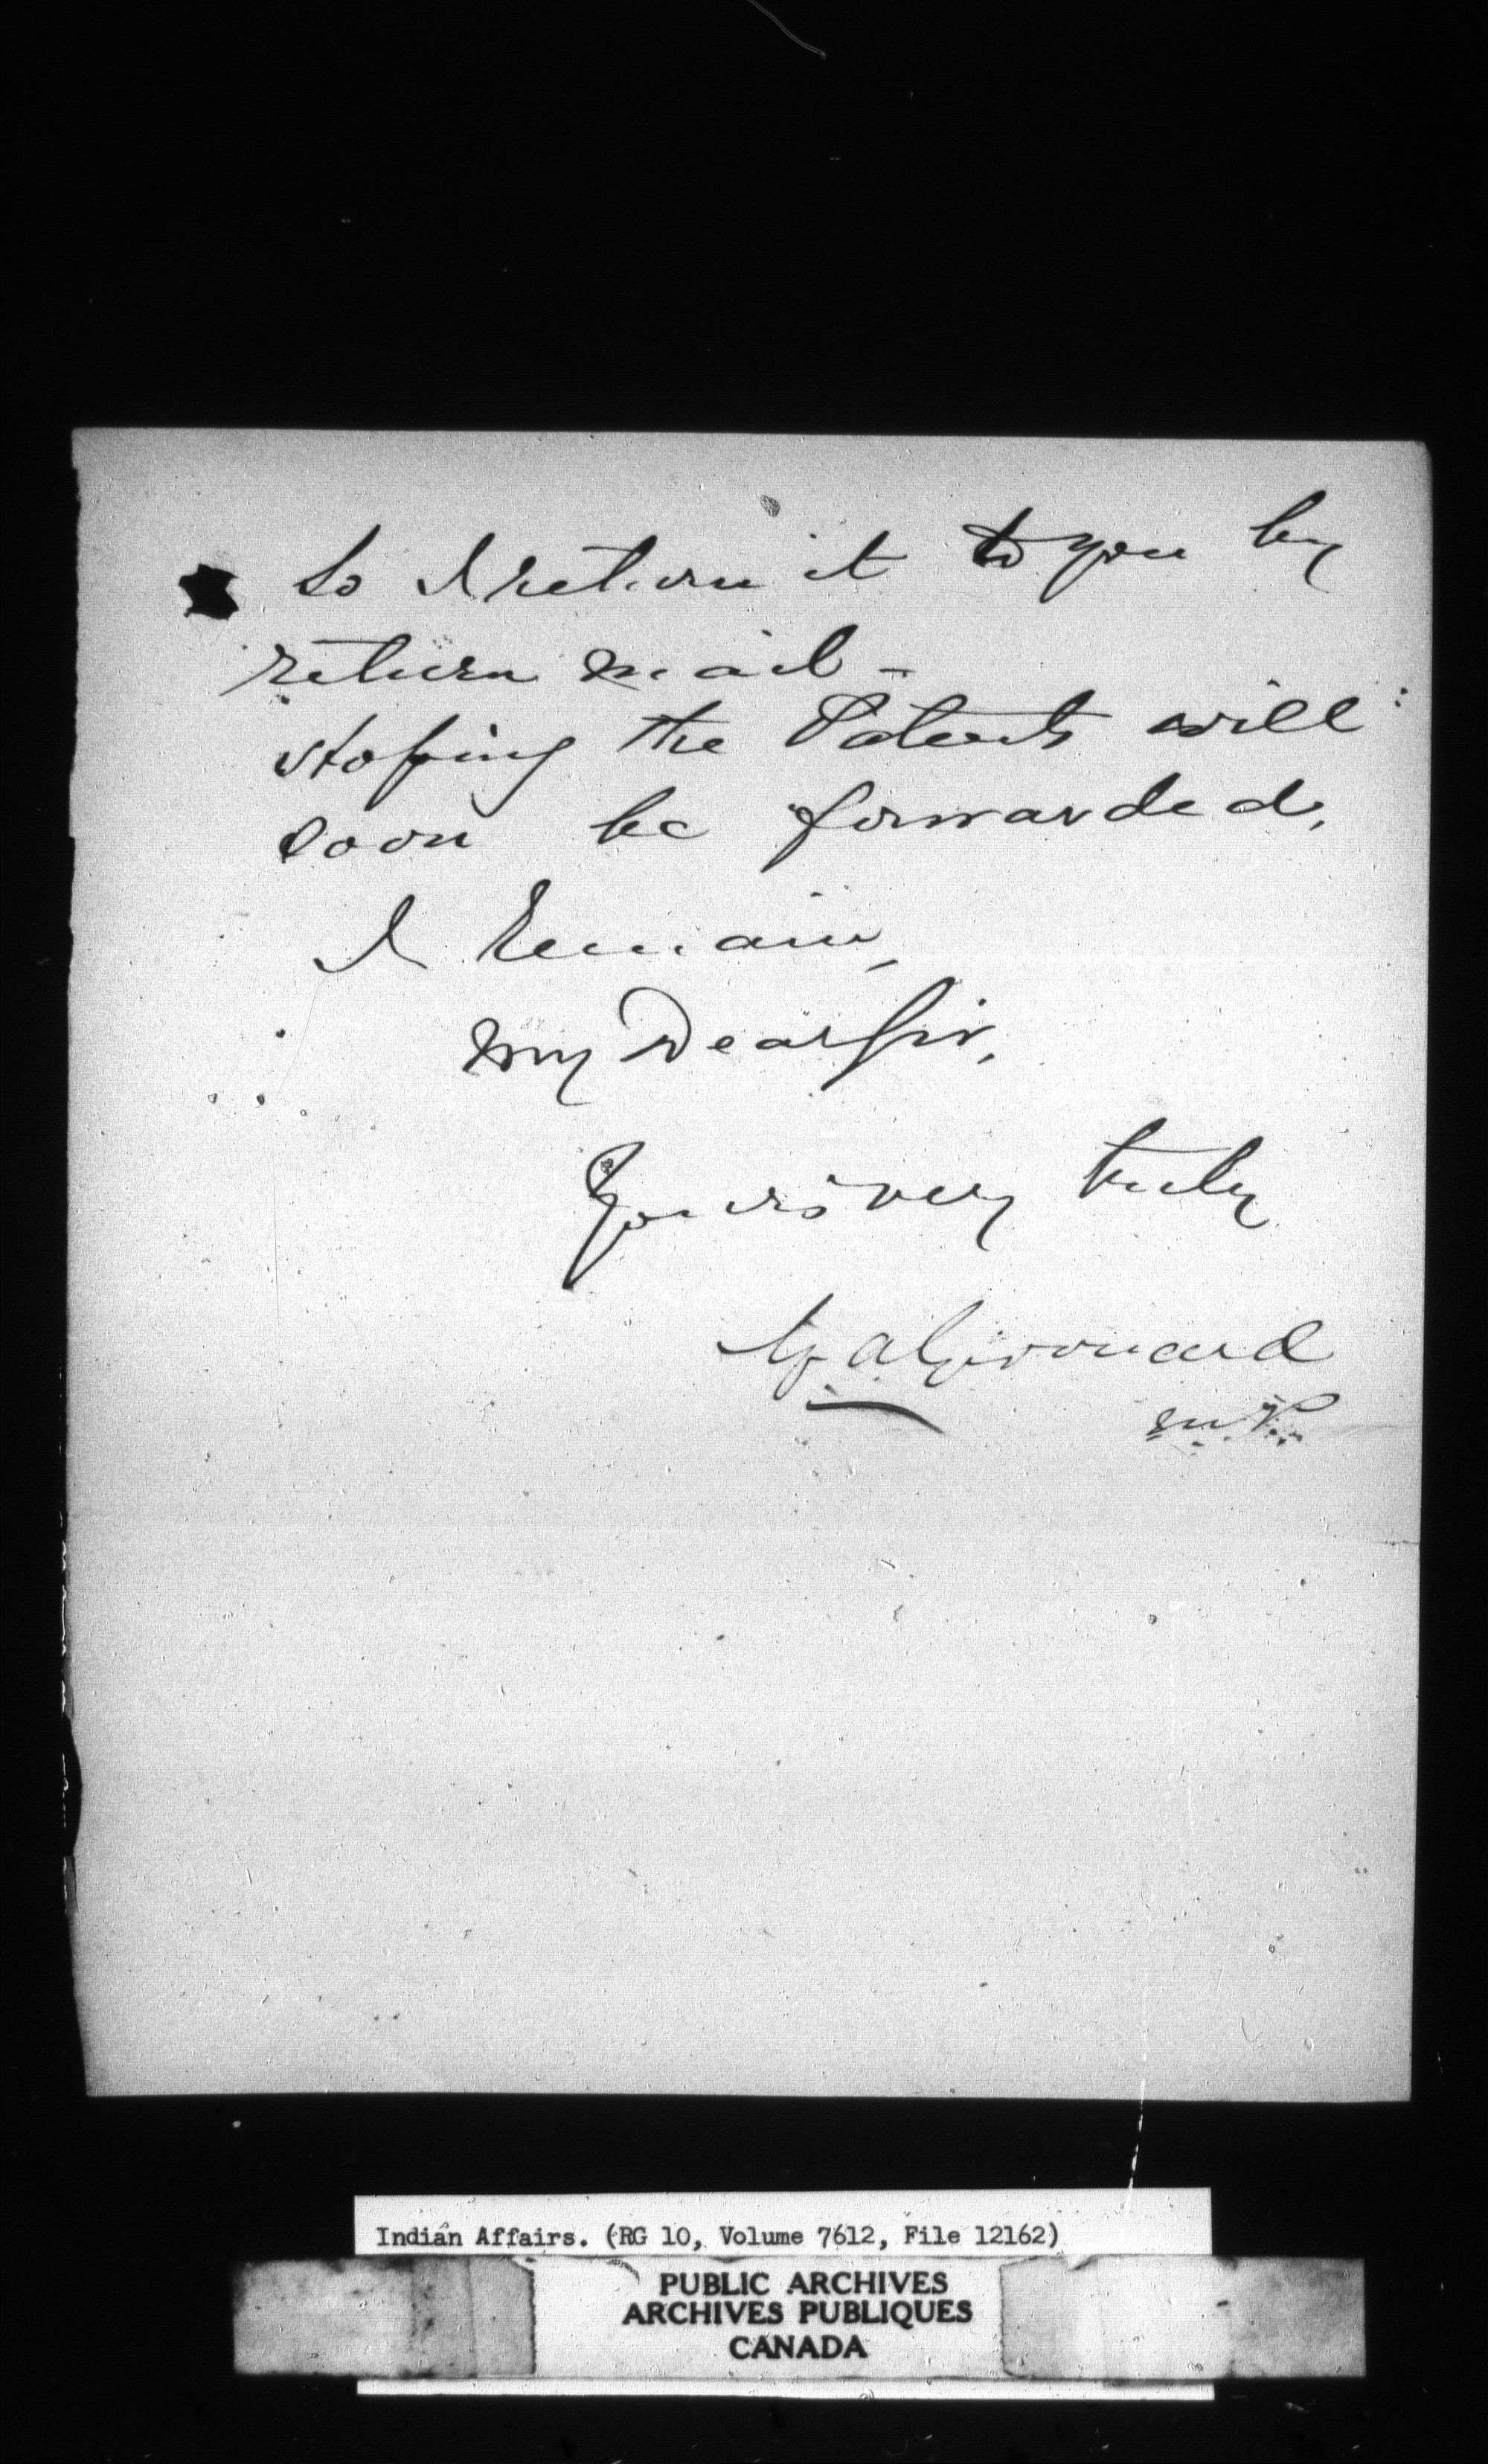 So I return it to you by
return mail -
stoping the Patents will
soon be forwarded,
I Remain,
My Dear Sir,
Yours very truly
G A Girouard
M.P.
Indian Affairs. (RG 10, Volume 7612, File 12162)
PUBLIC ARCHIVES
ARCHIVES PUBLIQUES
CANADA